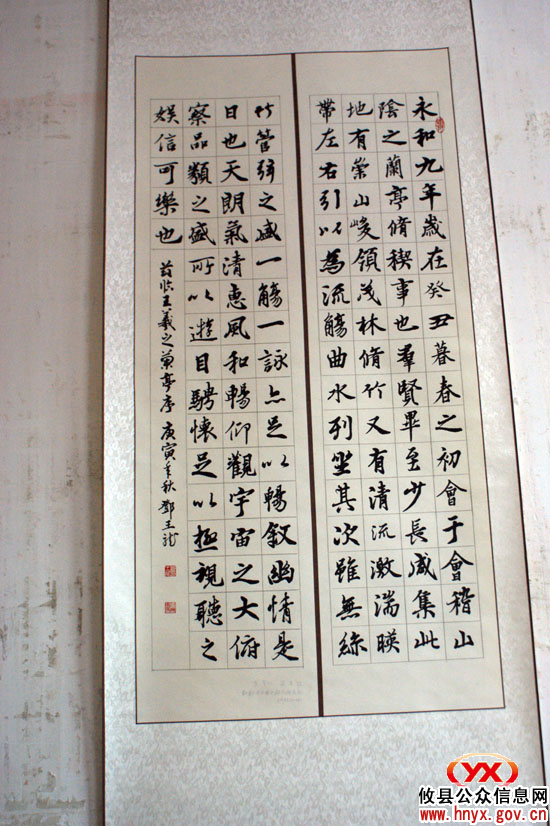 永和九年歲在癸丑暮春之初會于會稽山
陰之蘭亭脩稧事也羣賢畢至少長咸集此
地有崇山峻領茂林脩竹又有清流激湍暎
帶左右引以為流觴曲水列坐其次雖無絲
竹管弦之盛一觴一詠亦足以暢叙幽情是
日也天朗氣清惠風和暢仰觀宇宙之大俯
察品類之盛所以遊目騁懷足以極視聽之
娛信可樂也
臨王羲之蘭亭序 庚寅年秋 鄧
YX
攸县公众信息网
www.hnyx.gov.cn